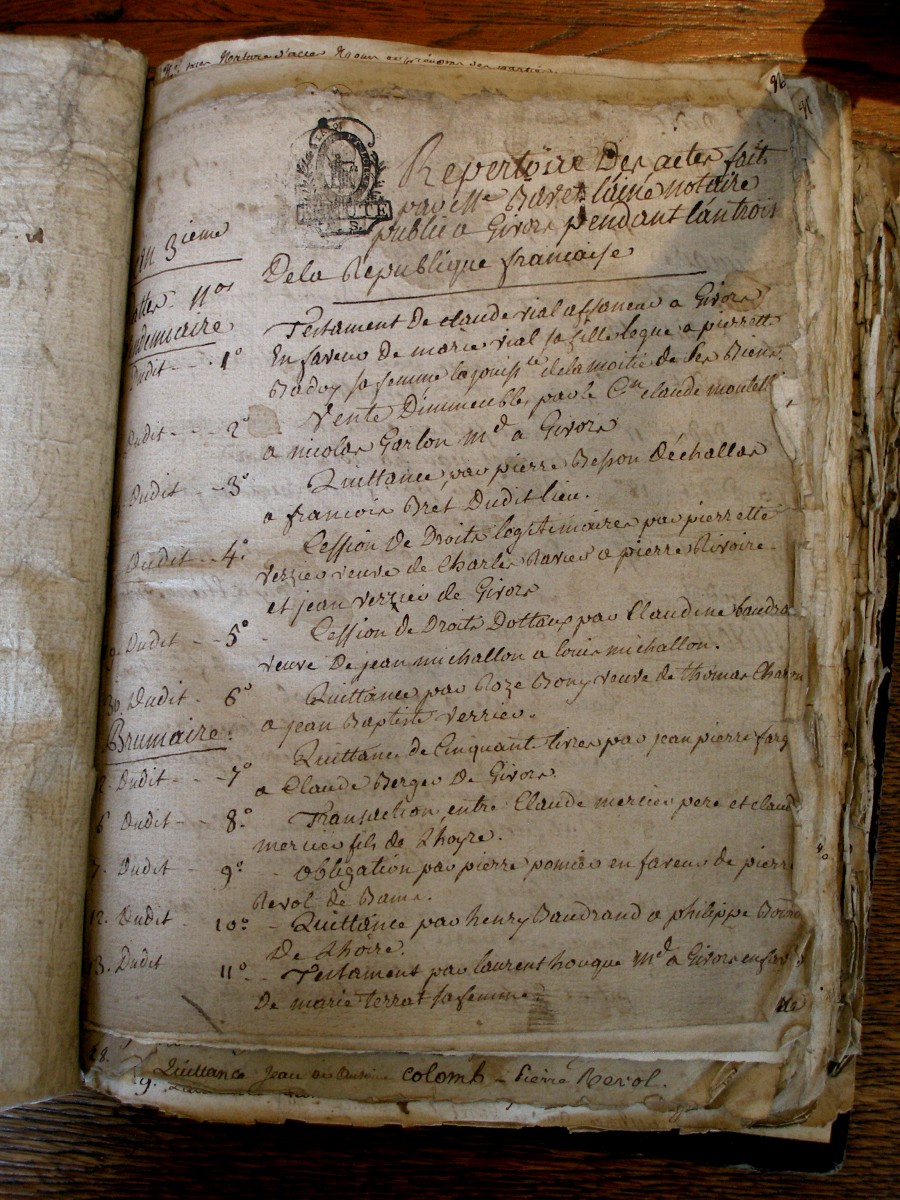 Repertoire Des actes faits
par Me Bavet lainé notaire
public a Givors pendant lan trois
De la Republique française
an 3ieme
Dattes nos
Dudit 1° Testament De claude vial affaneur a Givors
En faveur de marie vial sa fille legue a pierrette
Badoy sa femme la jouisce de la moitié de ses Biens
Dudit 2° Vente D'immeubles par le Cen claude
a nicolas Garlon md a Givors
Dudit 3° Quittance par pierre Besson Déchallas
a francois Bret Dudit lieu.
Dudit 4° Cession De Droits legitimaires par pierrette
verrier veuve de Charles Ravier a pierre Rivoire
et jean verrier de Givors
9. Dudit 5° Cession de Droits Dottaux par Claudine
veuve De jean michallon a louis michallon.
30. Dudit 6° Quittance par Roze Bony veuve de thomas
a jean Baptiste verrier.
Brumaire.
Dudit 7° Quittance de Cinquante livres par jean pierre
a Claude Berger De Givors
6 Dudit 8° Transaction entre Claude mercier pere et claude
mercier fils de Lhoyre.
7. Dudit 9° obligation par pierre pomier en faveur de pierre
Revol de
12. Dudit 10° Quittance par henry Baudrand a philippe
De Lhoire.
13. Dudit 11° Testament par laurent houque md a Givors en fav
De marie terrat sa femme
de
28.
9. Quittance Jean colomb - Pierre Revol.